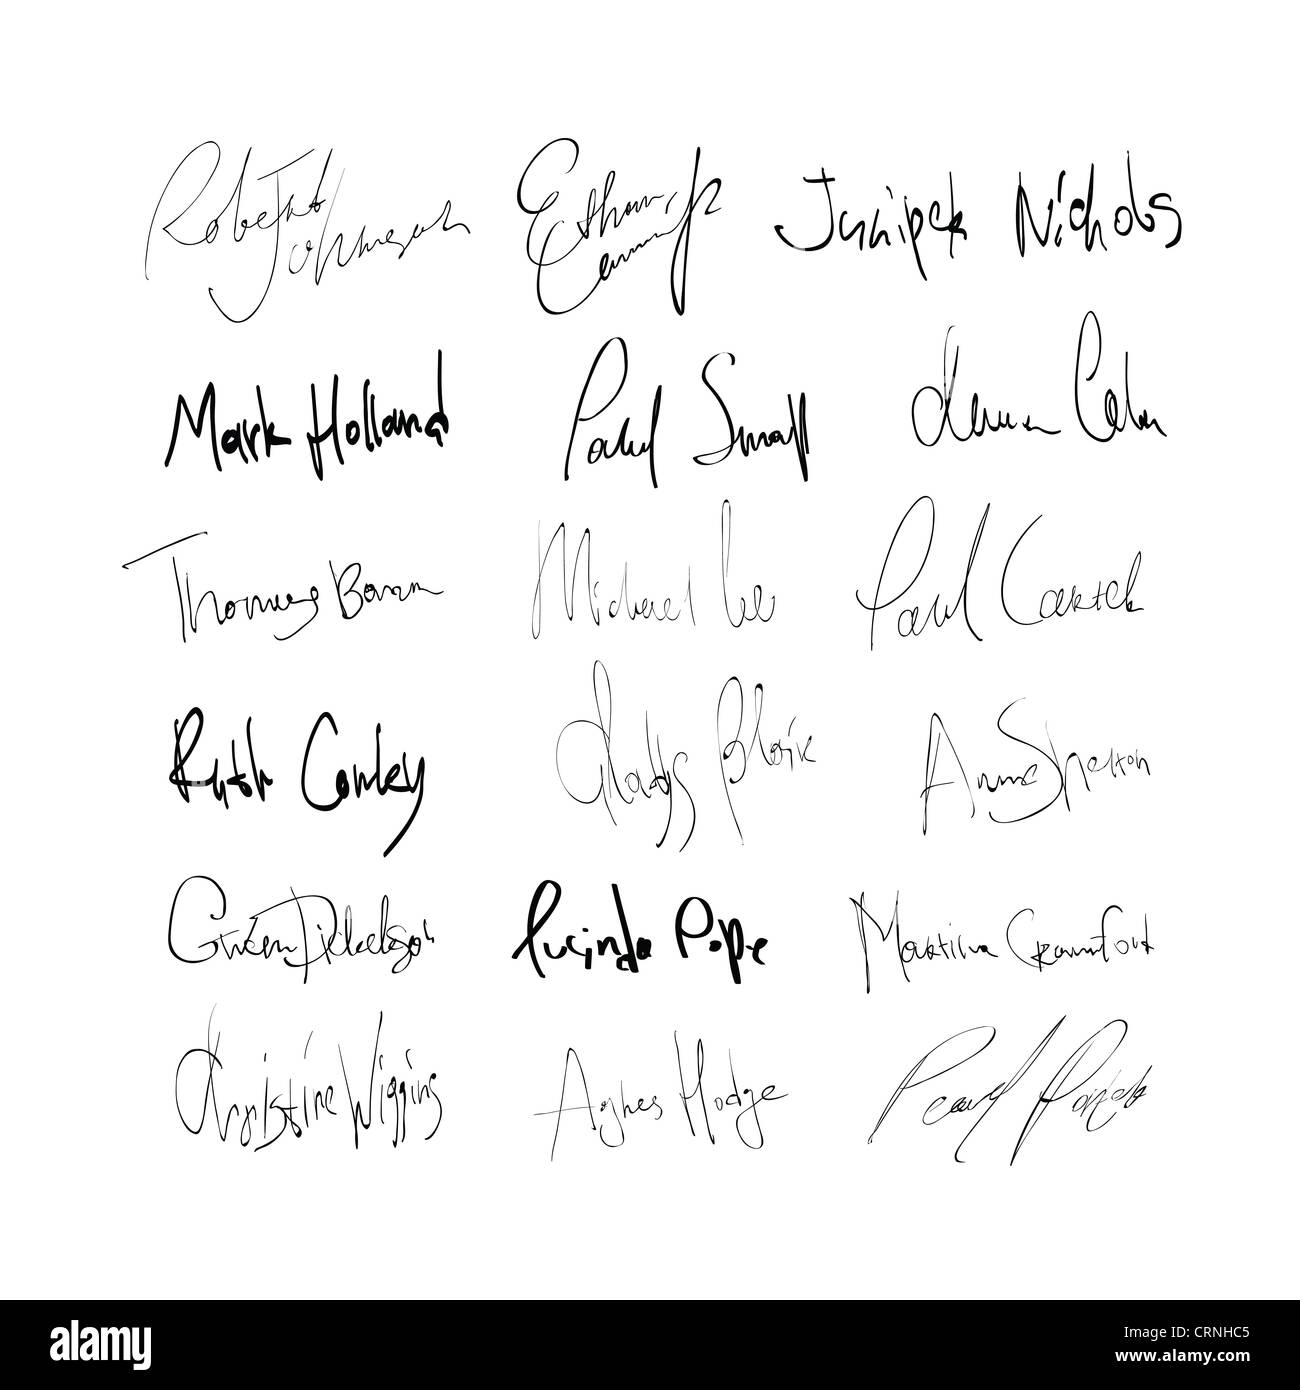 Robert Johnson
Ethan
Juniper Nichols
Mark Holland
Paul Small
Thomas
Michael Lee
Paul Carter
Ruth Conley
Gladys Blair
Anna Shelton
Gwen Dickerson
Lucinda Pope
Martina Crawford
Christine Wiggins
Agnes Hodge
Pearl Porter
alamy
Image ID: CRNHC5
www.alamy.com